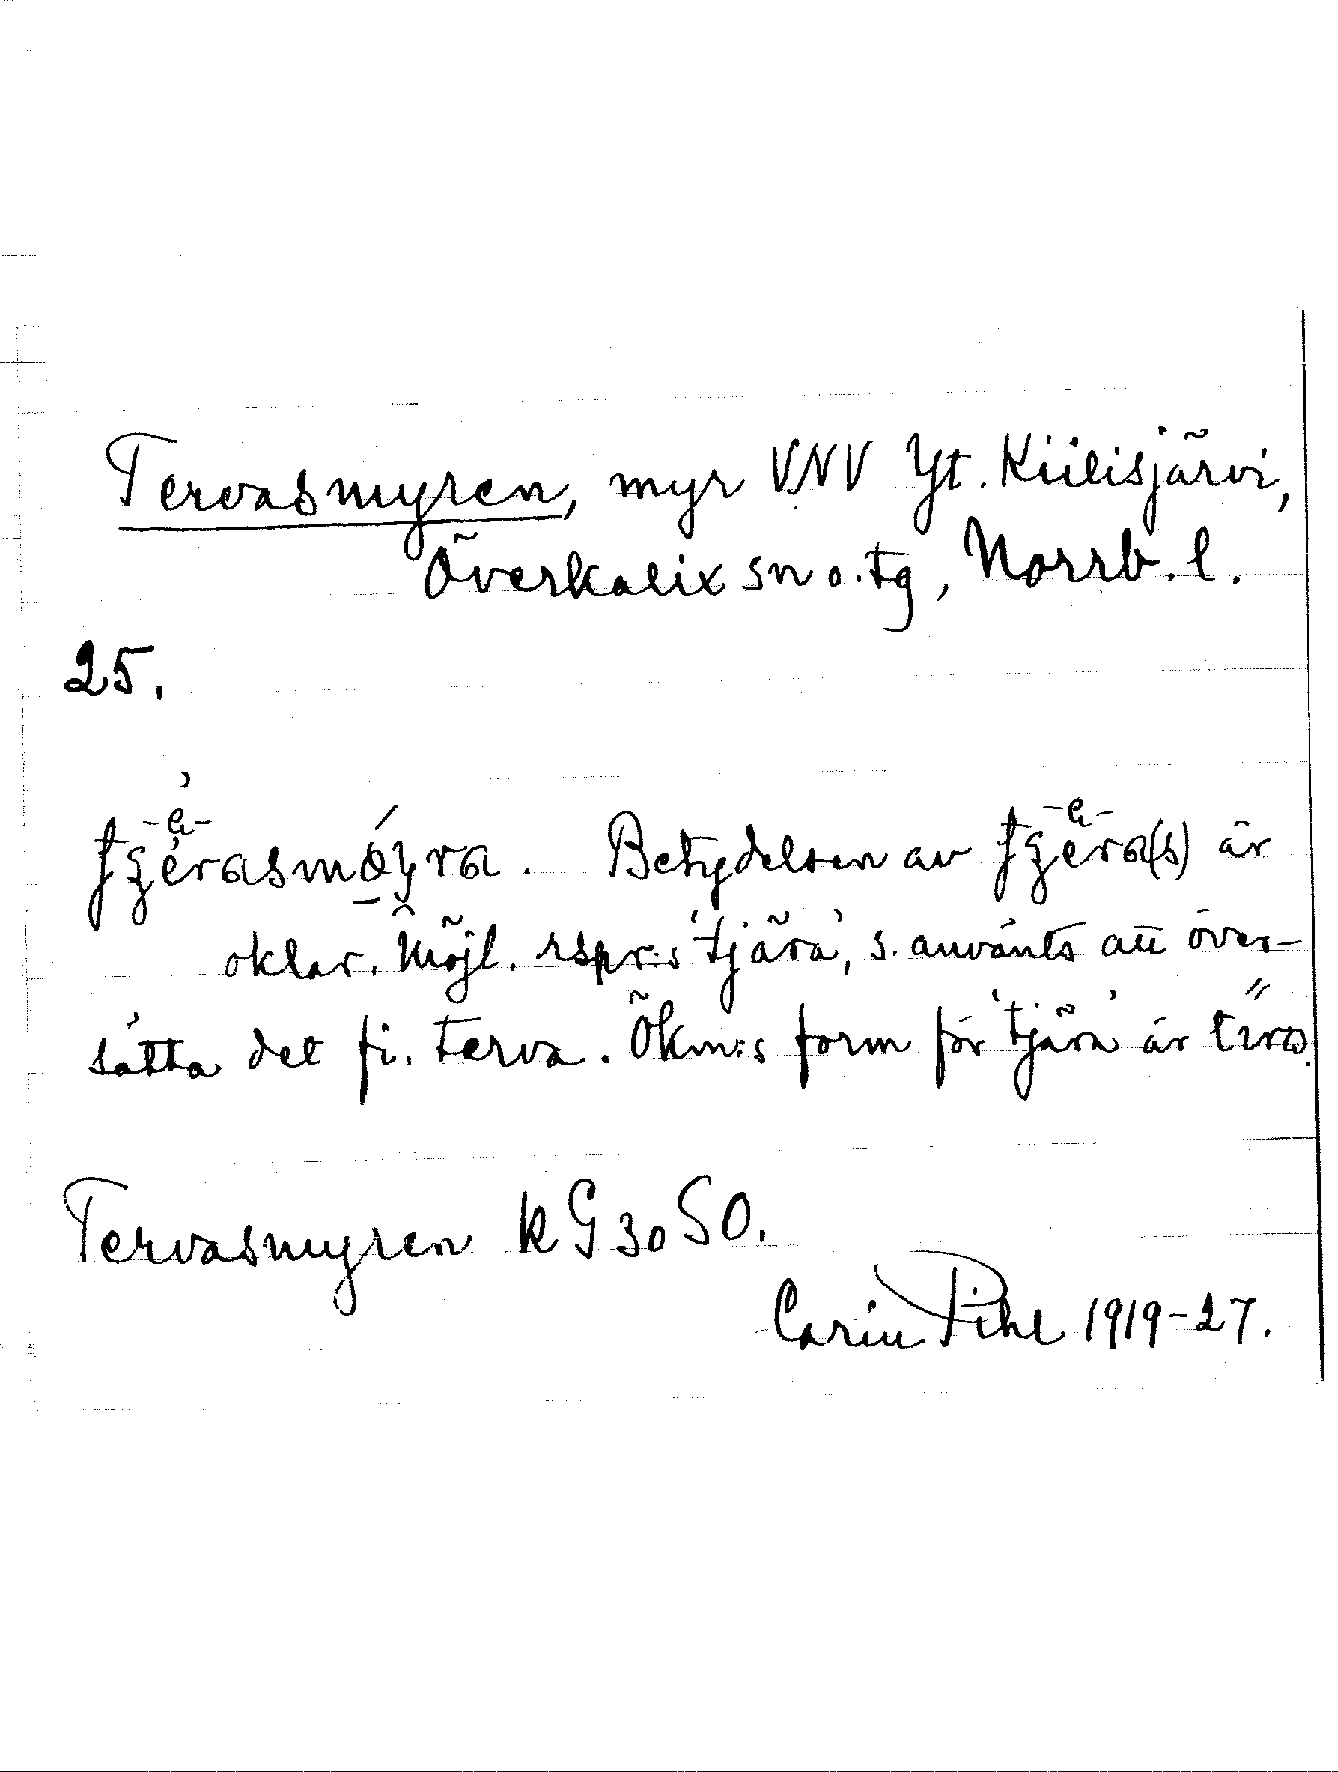 Tervasmyren, myr VNV Yt. Kiilisjärvi,
Överkalix sn o. tg, Norrb. l.
25.
Betydelsen av är
oklar. Möjl. rspr:s 'tjära', s. använts att över-
sätta det fi. terva. Ökm:s form för 'tjära' är
Tervasmyren k G 30 SO.
Carin Pihl 1919-27.